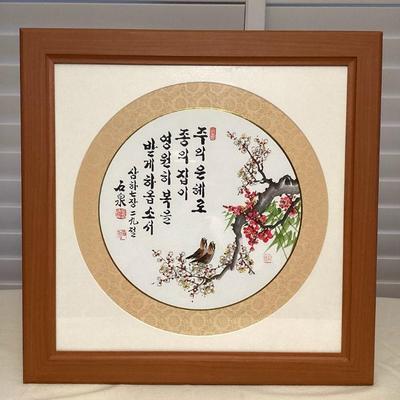 주의 은혜로
종의 집이
영원히 복을
받게 하옵소서
삼하 七장 二九절
石泉